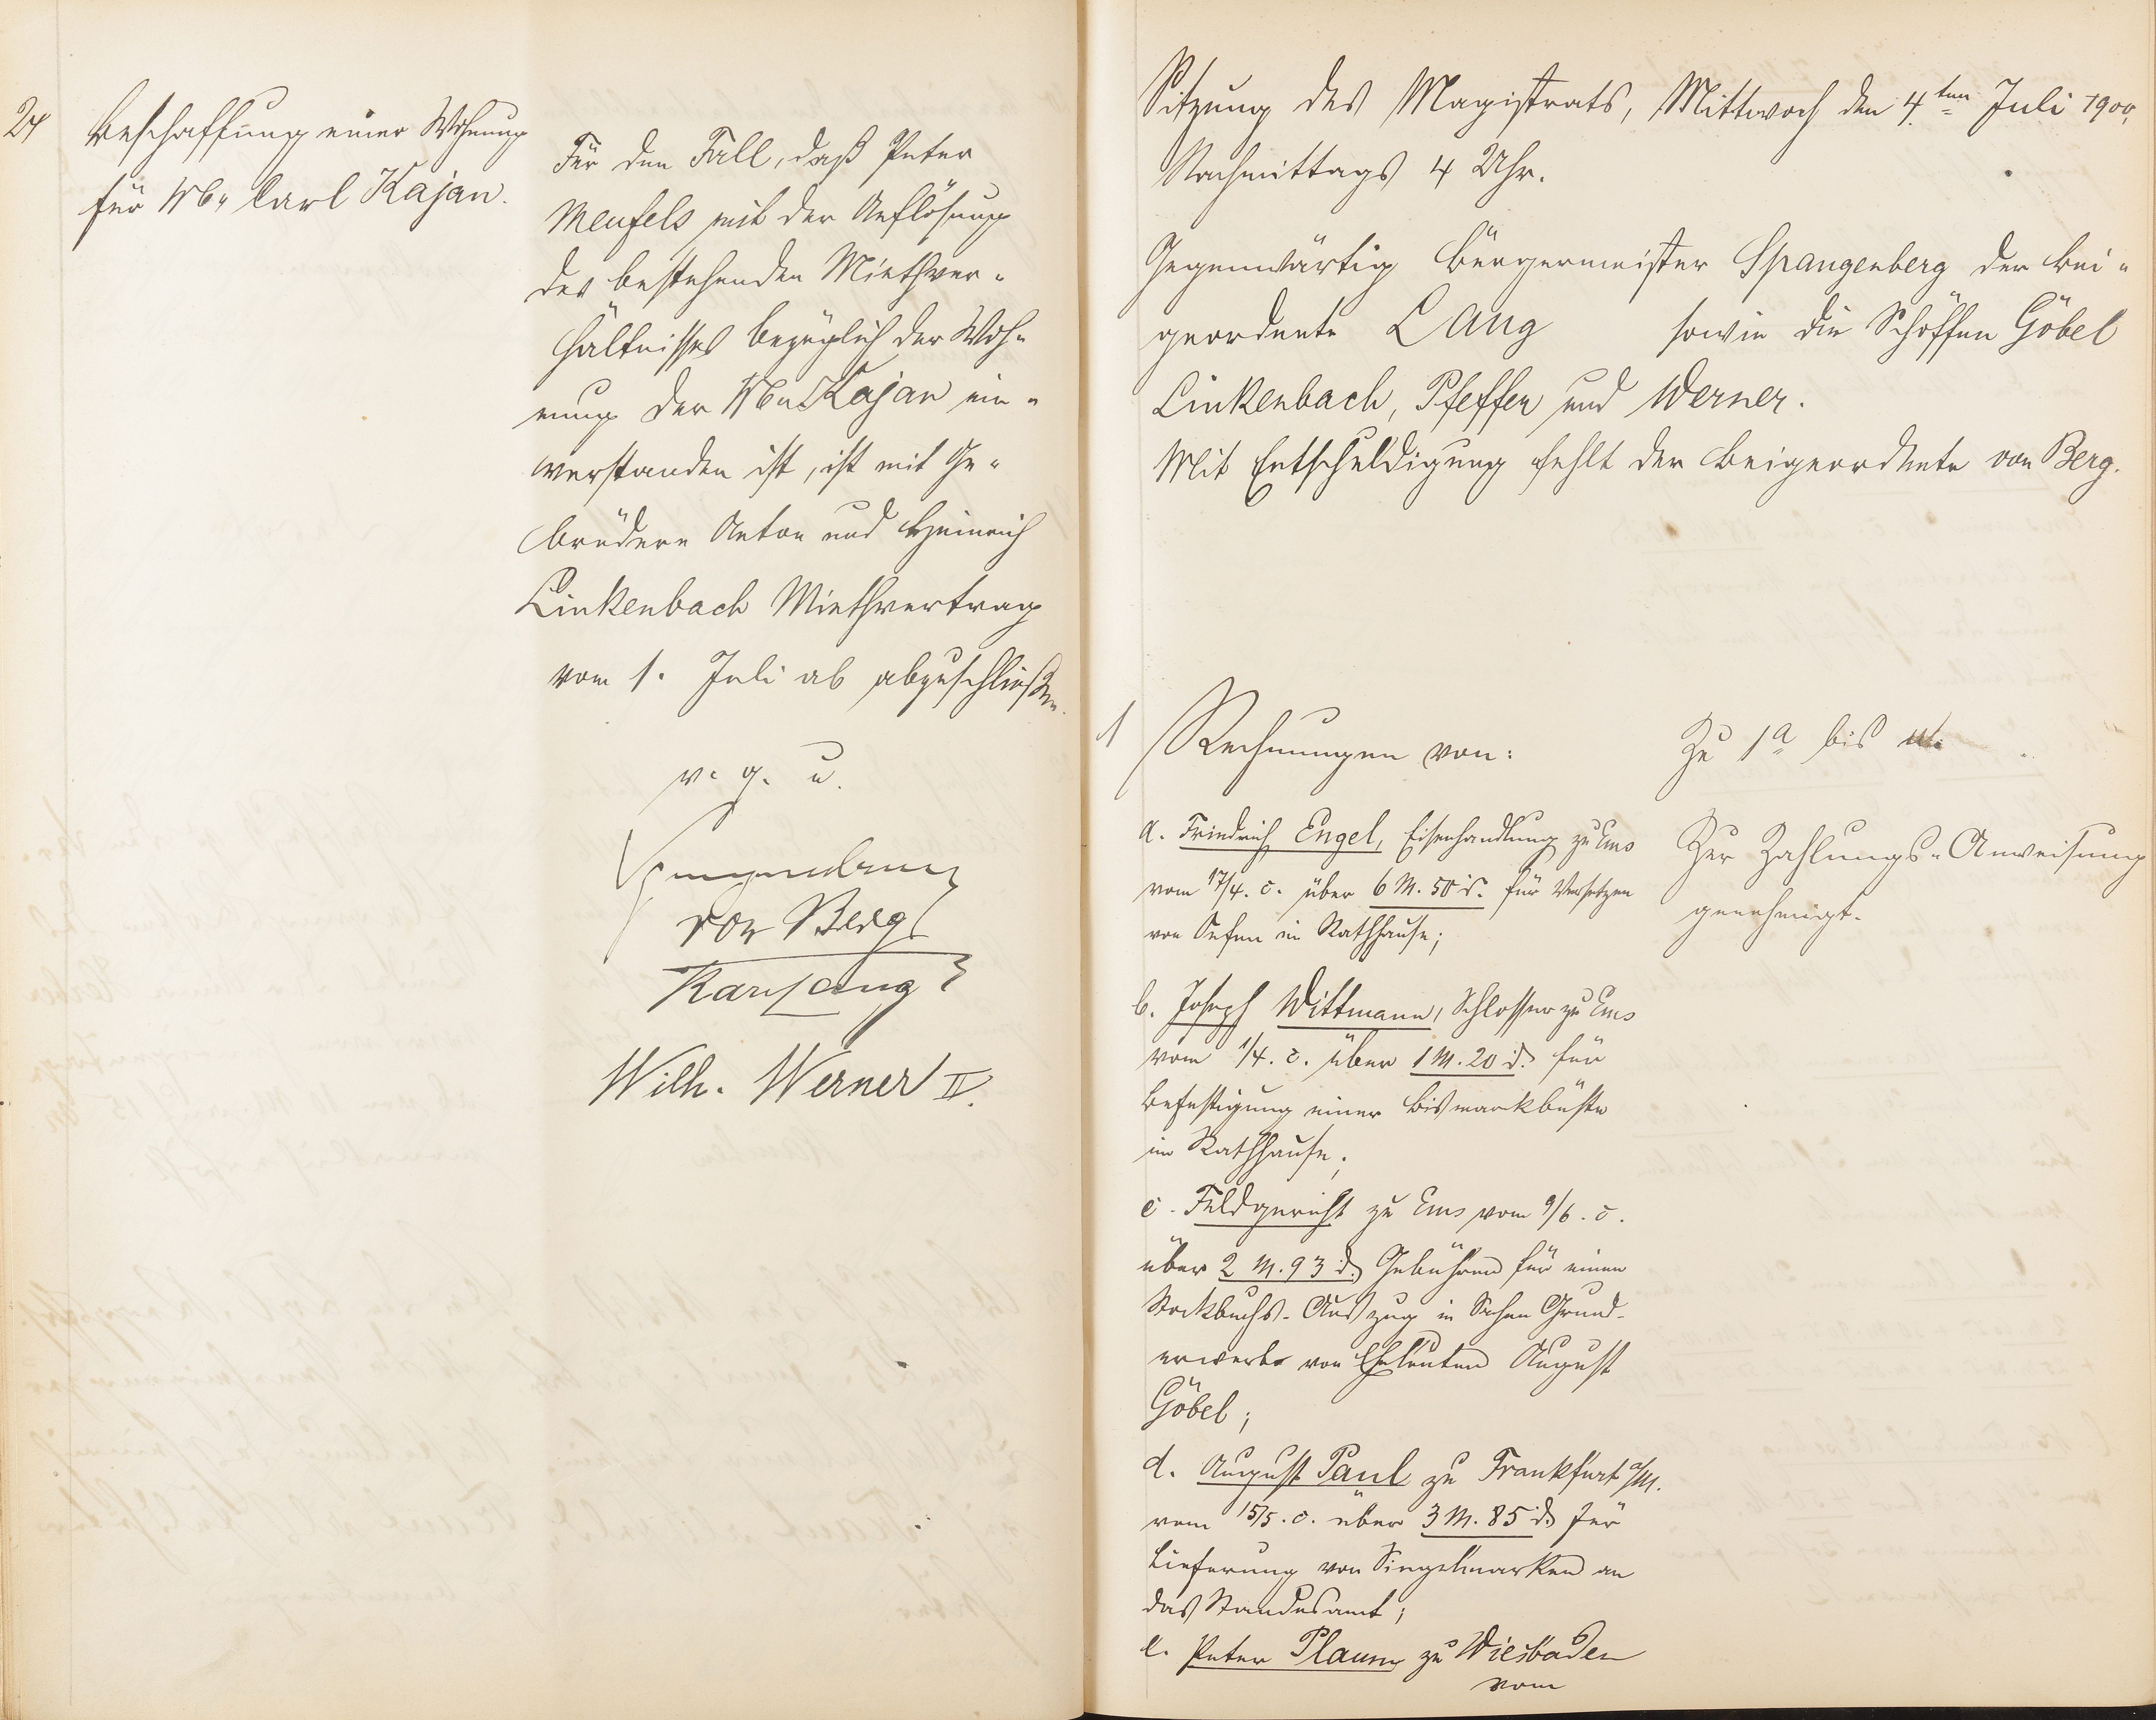 24
Beschaffung einer Wohnung
für Wb. Carl Kajan.
Für den Fall, daß Peter
Meufels mit der Auflösung
des bestehenden Miethver-
hältnisses bezüglich der Woh-
nung der Wb. Kajan ein-
verstanden ist, ist mit Ge-
brüdern Anton und Heinrich
Linkenbach Miethvertrag
vom 1. Juli ab abzuschließen.
v. g. u.
Spangenberg
von Berg
Karl Lang
Wilh. Werner II.
Sitzung des Magistrats, Mittwoch den 4.ten Juli 1900,
Nachmittags 4 Uhr.
Gegenwärtig Bürgermeister Spangenberg der Bei-
geordnete Lang sowie die Schöffen Göbel
Linkenbach, Pfeffer und Werner.
Mit Entschuldigung fehlt der Beigeordnete von Berg.
1 Rechnungen von:
a. Friedrich Engel, Eisenhandlung zu Ems
vom 17/4. c. über 6 M. 50 d. für Versetzen
von Oefen im Rathhause;
b. Joseph Wittmann, Schlosser zu Ems
vom 1/4. c. über 1 M. 20 d. für
Befestigung einer Bismarckbüste
im Rathhause;
c. Feldgericht zu Ems vom 9/6. c.
über 2 M. 93 d. Gebühren für einen
Stockbuchs-Auszug in Sachen Grund-
erwerbs von Eheleuten August
Göbel;
d. August Paul zu Frankfurt a/M.
vom 15/5. c. über 3 M. 85 d. für
Lieferung von Siegelmarken an
das Standesamt;
e. Peter Plaum zu Wiesbaden
vom
Zu 1a bis
Zur Zahlungs-Anweisung
genehmigt.